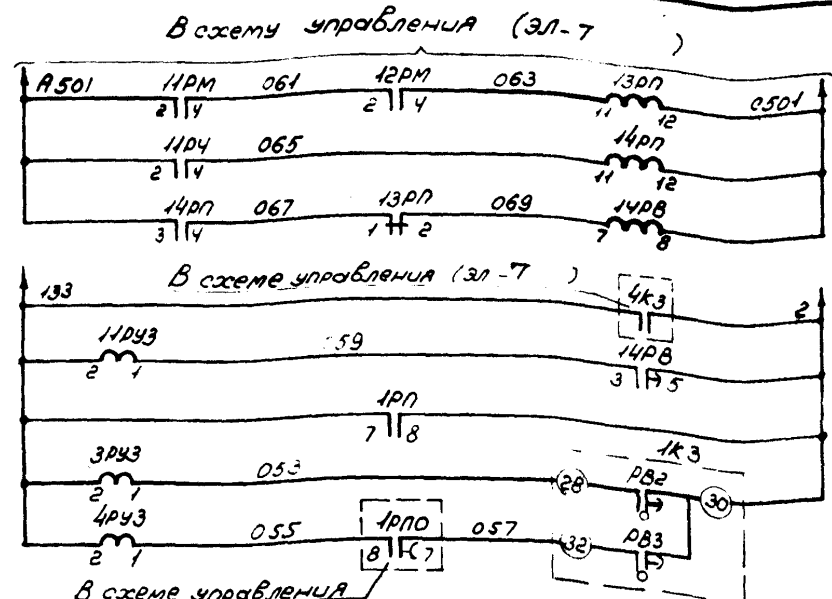 В схему управления (ЭЛ-7 )
А501 11РМ 061 12РМ 063 13РП С501
2 4 2 4 11 12
11РУ 065 14РП
2 4 11 12
14РП 067 13РП 069 14РВ
3 4 1 2 7 8
В схеме управления (ЭЛ-7 )
133 4КЗ 2
11РУЗ 59 14РВ
2 1 3 5
1РП
7 8
1КЗ
3РУЗ 053 28 РВ2 30
2 1
4РУЗ 055 1РПО 057 32 РВ3
2 1 8 7
В схеме управления